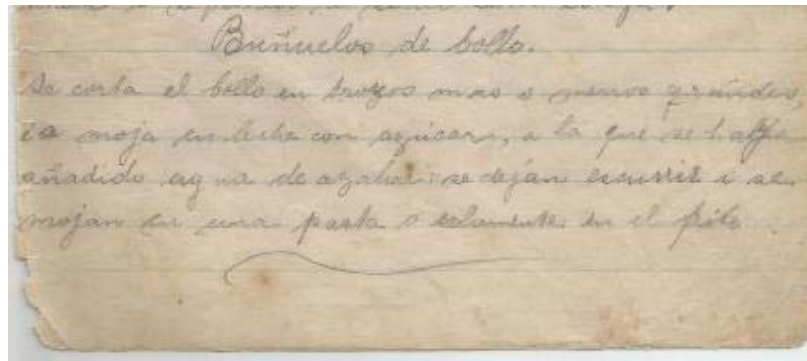 Buñuelos de bollo.
Se corta el bollo en trozos mas o menos grandes,
se moja en leche con azúcar, a la que se halla
añadido agua de azahar: se dejan escurrir i se
mojan en una pasta o solamente en el